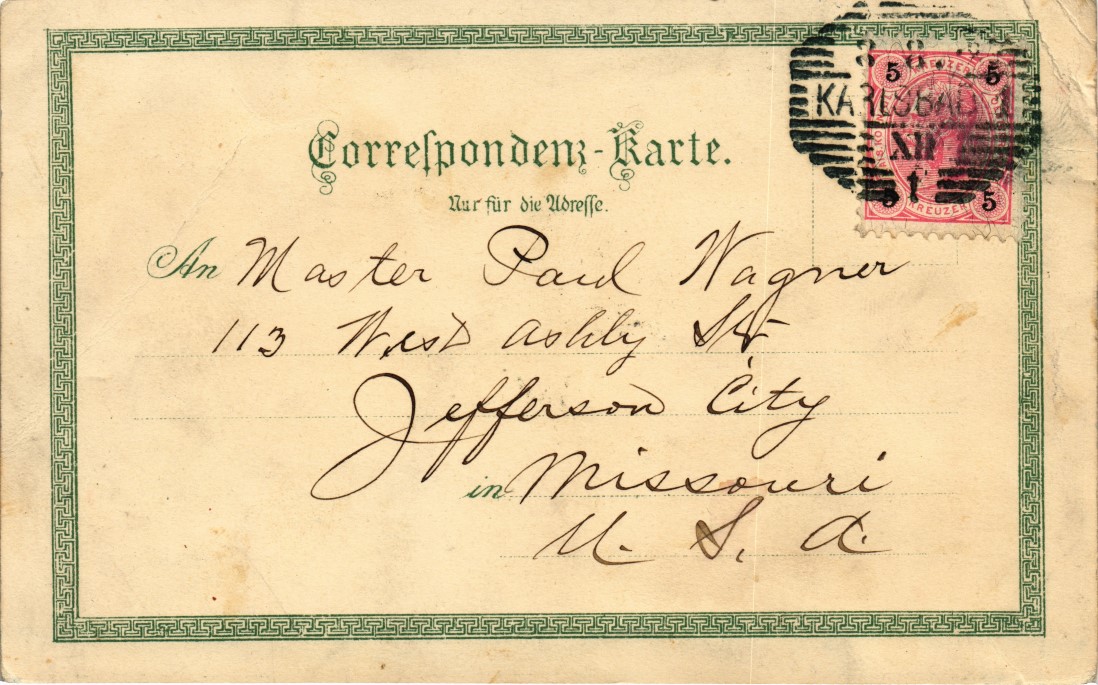 5 KREUZER 5
KARLSBAD 1
XII
t
5 KREUZER 5
Correſpondenz-Karte.
Nur für die Adreſſe.
An Master Paul Wagner
113 West Ashly St
Jefferson City
in Missouri
U. S. A.